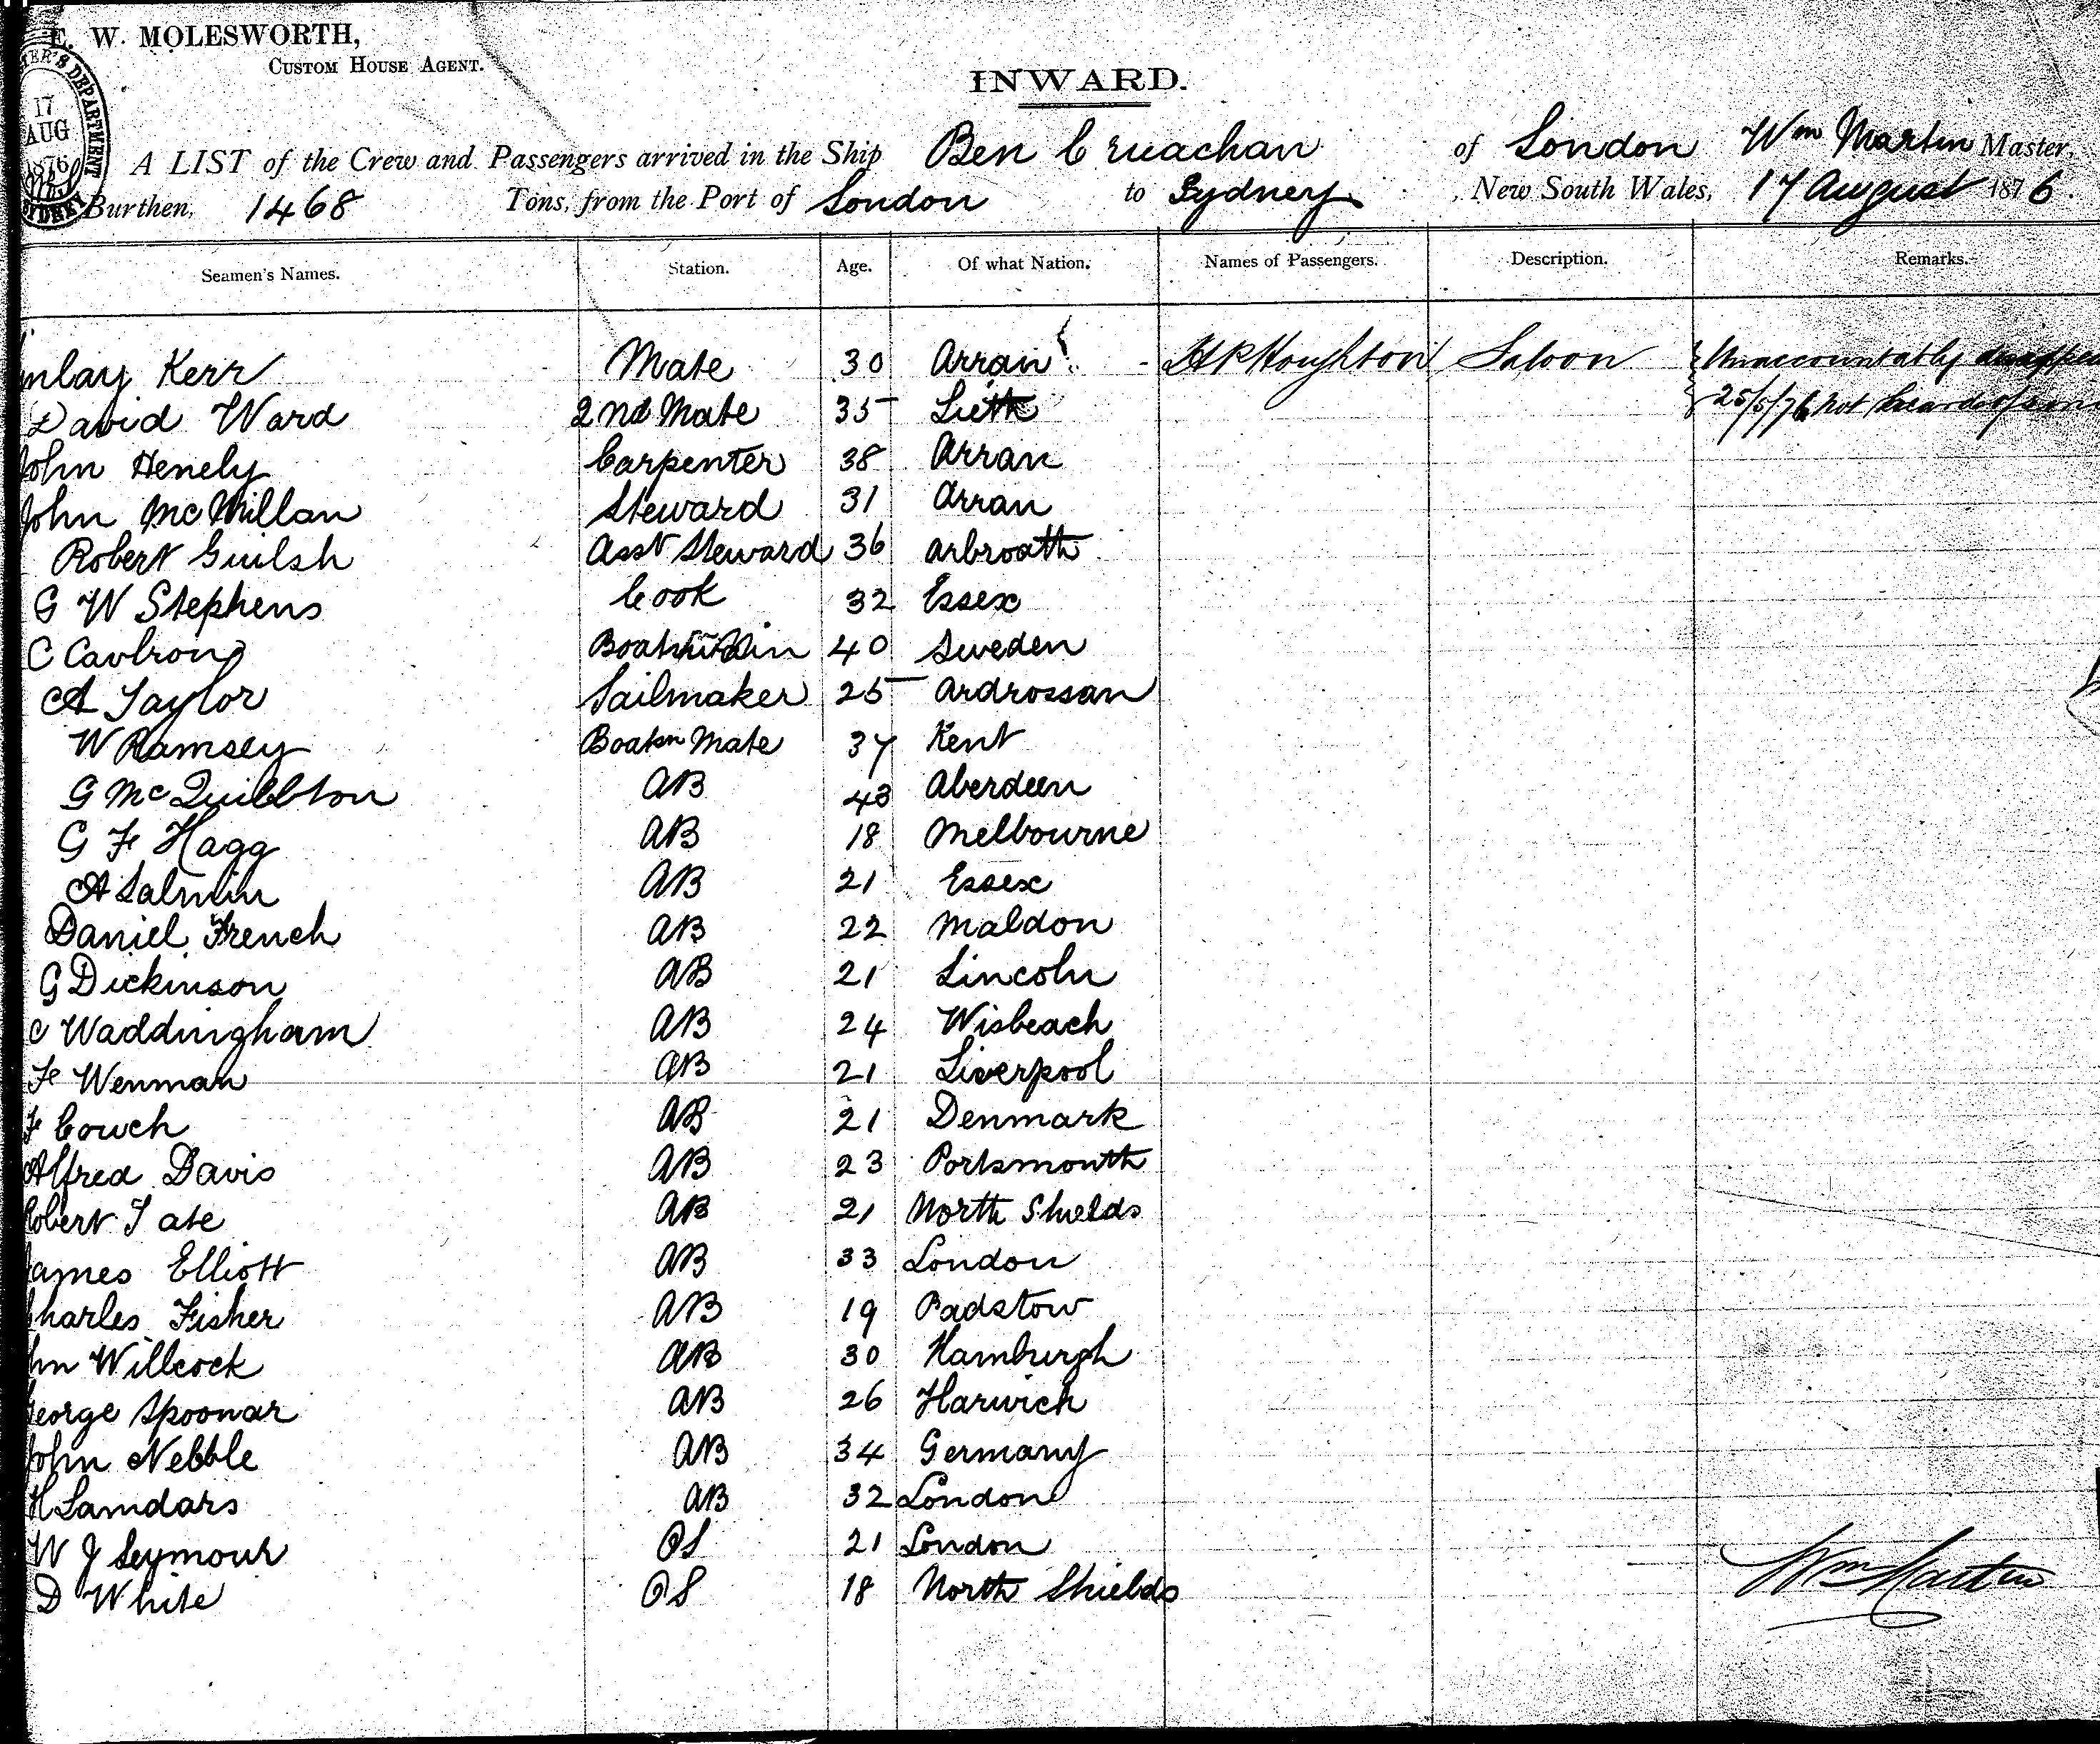 E. W. MOLESWORTH,
CUSTOM HOUSE AGENT.
INWARD.
17
AUG
1876
DEPARTMENT
SYDNEY
A LIST of the Crew and Passengers arrived in the Ship Ben Cruachan of London Wm Martin Master,
Burthen, 1468 Tons, from the Port of London to Sydney, New South Wales, 17 August 1876.
Seamen's Names. Station. Age. Of what Nation. Names of Passengers. Description. Remarks.
nlay Kerr Mate 30 Arran H R Houghton Saloon Unaccountably disappea
David Ward 2nd Mate 35 Lieth 25/5/76 not heard of
John Henely Carpenter 38 Arran
John McMillan Steward 31 Arran
Robert Guilsh Asst Steward 36 Arbroath
G W Stephens Cook 32 Essex
C Cavbrong 40 Sweden
A Taylor Sailmaker 25 Ardrossan
W Ramsey Boatsn Mate 37 Kent
G McQuibbton AB 43 Aberdeen
G F Hagg AB 18 Melbourne
A Salmin AB 21 Essex
Daniel French AB 22 Maldon
G Dickinson AB 21 Lincoln
C Waddingham AB 24 Wisbeach
F Wenman AB 21 Liverpool
F Couch AB 21 Denmark
Alfred Davis AB 23 Portsmouth
Robert Tate AB 21 North Shields
James Elliott AB 33 London
Charles Fisher AB 19 Padstow
hn Willcock AB 30 Hamburgh
George Spoonar AB 26 Harwich
John Nebble AB 34 Germany
H Samdars AB 32 London
W J Seymour OS 21 London
D White OS 18 North Shields
Wm Martin